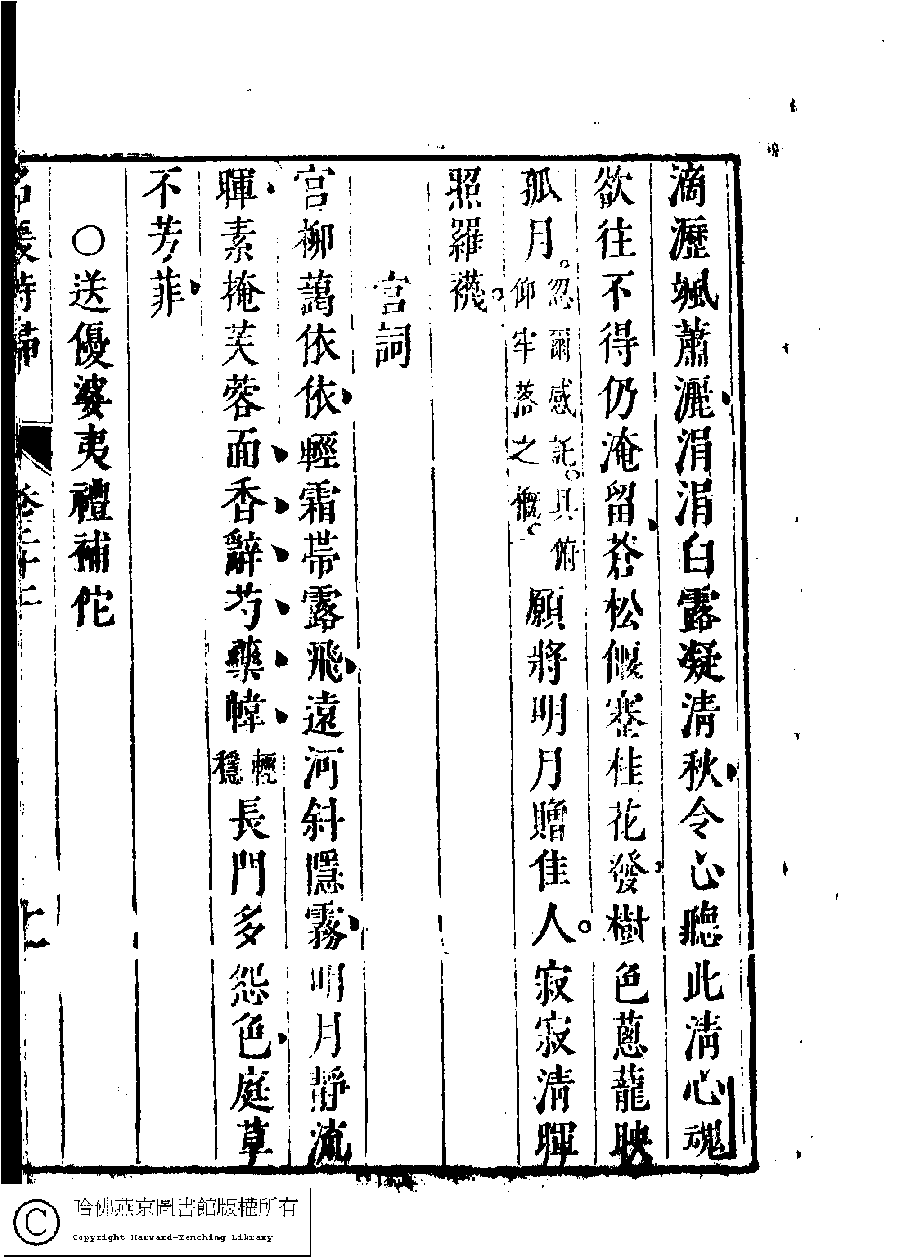 滴瀝颯蕭灑涓涓白露凝清秋令心聽此清心魂
欲往不得仍淹留蒼松偃蹇桂花發樹色蔥蘢映
孤月忽爾感託具俯仰牢落之慨願將明月贈佳人寂寂清暉
照羅襪
宮詞
宮柳藹依依輕霜帶露飛遠河斜隱霧明月靜流
暉素掩芙蓉面香辭芍藥幃輕穩長門多怨色庭草
不芳菲
○送優婆夷禮補佗
名媛詩歸 卷三十二
哈佛燕京圖書館版權所有
Copyright Harvard-Yenching Library